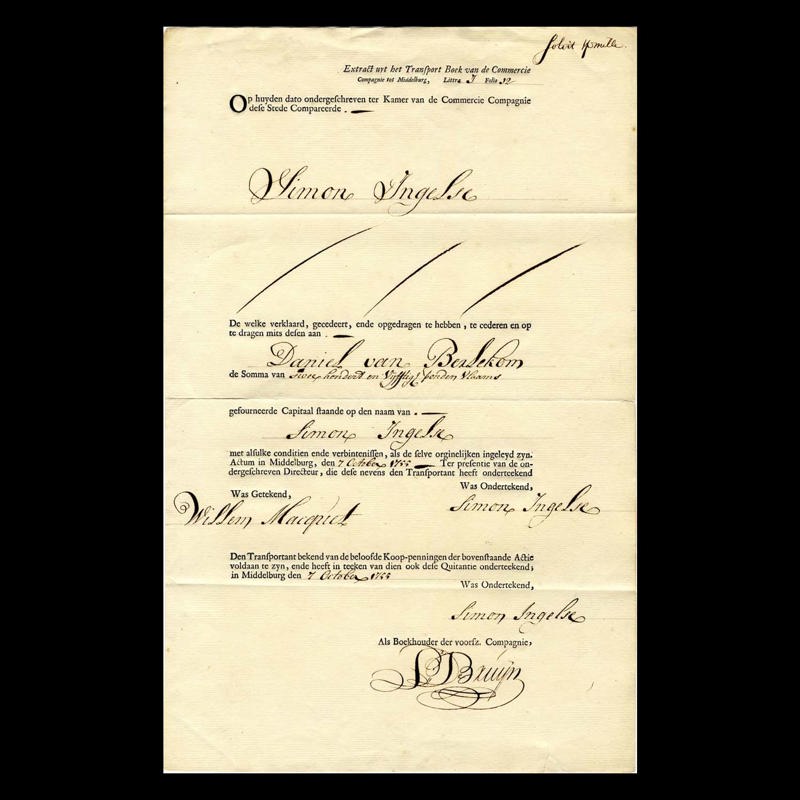 Solvit
Extract uyt het Transport Boek van de Commercie
Compagnie tot Middelburg, Littra J Folio 32
Op huyden dato ondergeschreven ter Kamer van de Commercie Compagnie
dese Stede Compareerde .
Simon Ingelse
De welke verklaard, gecedeert, ende opgedragen te hebben, te cederen en op
te dragen mits desen aan .
Daniel van Berlekom
de Somma van twee hondert en Vijfftig ponden Vlaams
gefourneerde Capitaal staande op den naam van .
Simon Ingelse
met alsulke conditien ende verbintenissen, als de selve orginelijken ingeleyd zyn.
Actum in Middelburg, den 7 October 1755 Ter presentie van de on-
dergeschreven Directeur, die dese nevens den Transportant heeft onderteekend
Was Getekend,
Was Ondertekend,
Willem Macquet
Simon Ingelse
Den Transportant bekend van de beloofde Koop-penningen der bovenstaande Actie
voldaan te zyn, ende heeft in teeken van dien ook dese Quitantie onderteekend;
in Middelburg den 7 October 1755
Was Ondertekend,
Simon Ingelse
Als Boekhouder der voorsz. Compagnie,
Bruijn